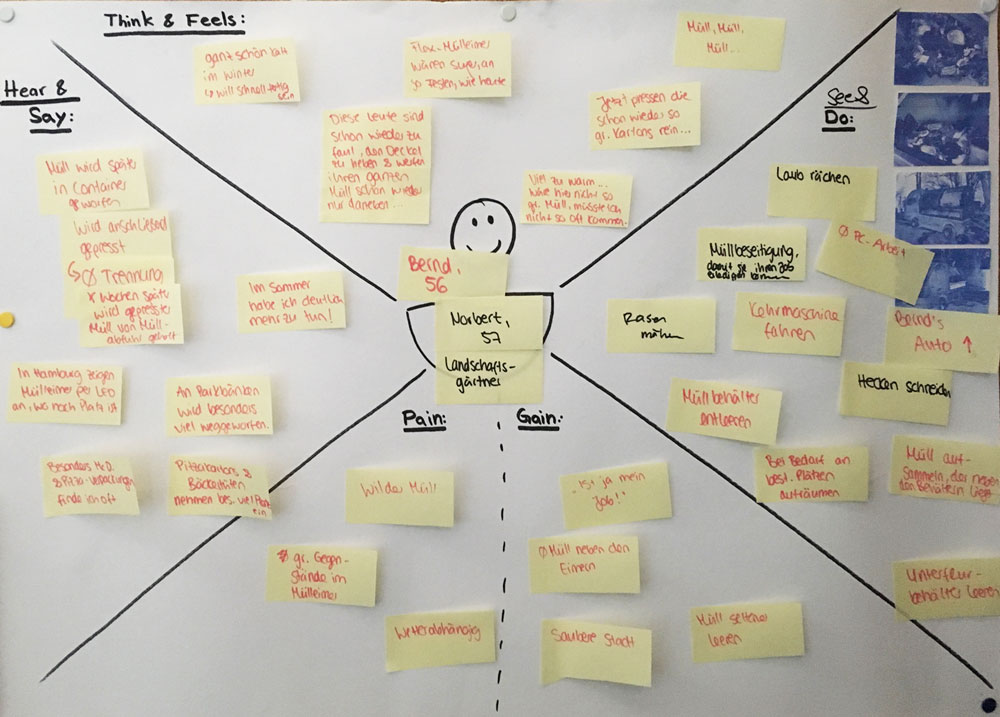 Think & Feels:
ganz schön kalt
im Winter
↳ will schnell fertig
sein
Flex-Mülleimer
wären super, an
so Festen, wie heute
Müll, Müll,
Müll...
Diese Leute sind
schon wieder zu
faul, den Deckel
zu heben & werfen
ihren ganzen
Müll schön wieder
nur daneben...
Jetzt pressen die
schon wieder so
gr. Kartons rein...
Viel zu warm...
wäre hier nicht so
gr. Müll, müsste ich
nicht so oft kommen.
Hear &
Say:
Müll wird später
in Container
geworfen
Wird anschließend
gepresst
↳ Ø Trennung
x Wochen später
wird gepresster
Müll von Müll-
abfuhr geholt
Im Sommer
habe ich deutlich
mehr zu tun!
In Hamburg zeigen
Mülleimer per LED
an, wo noch Platz ist
An Parkbänken
wird besonders
viel weggeworfen.
Besonders McD.
& Pizza-Verpackungen
finde ich oft
Pizzakartons &
Bäckertüten
nehmen bes. viel Platz
ein
Bernd,
56
Norbert,
57
Landschafts-
gärtner
See &
Do:
Laub rächen
Ø PC-Arbeit
Müllbeseitigung,
damit sie ihren Job
erledigen können
Rasen
mähen
Kehrmaschine
fahren
Bernd's
Auto ↑
Hecken schneiden
Müllbehälter
entleeren
Bei Bedarf an
best. Plätzen
aufräumen
Müll auf-
sammeln, der neben
den Behältern liegt
Unterflur-
behälter leeren
Pain:
Wilder Müll
gr. Gegen-
stände im
Mülleimer
Wetterabhängig
Gain:
"Ist ja mein
Job!"
Ø Müll neben den
Eimern
Saubere Stadt
Müll seltener
leeren